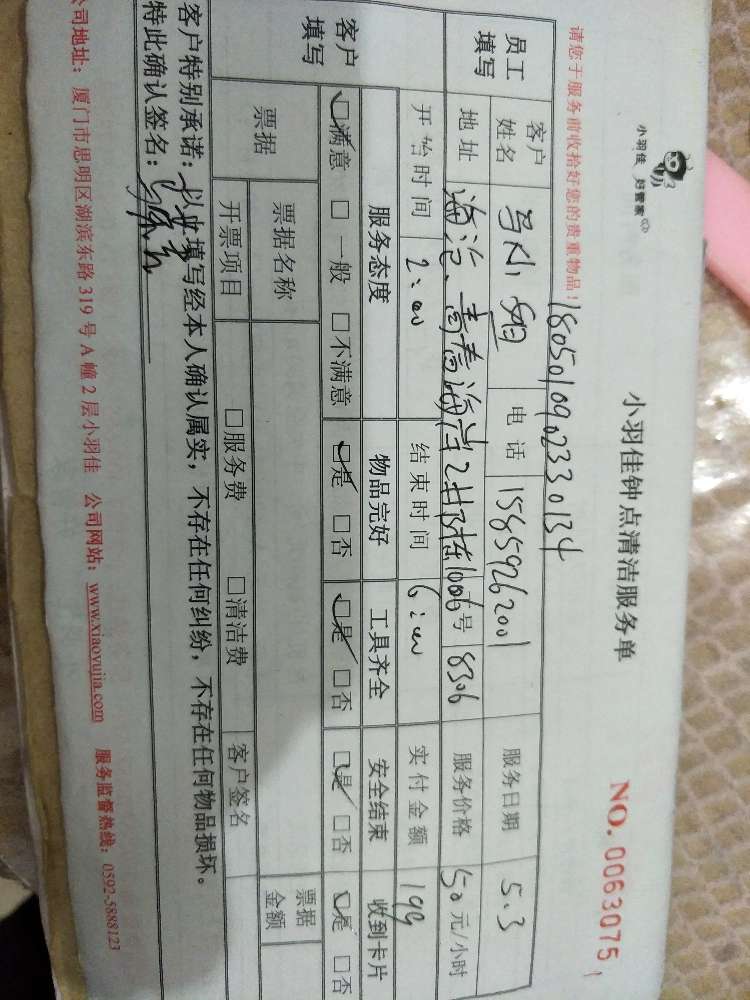 小羽佳 好管家
小羽佳钟点清洁服务单
NO. 0063075
请您于服务前收拾好您的贵重物品！
18050109023330134
员工填写
客户姓名 马小姐 电话 15859262001 服务日期 5.3
地址 1006号 8306 服务价格 50元/小时
开始时间 2:00 结束时间 6:00 实付金额 199
客户填写
服务态度 物品完好 工具齐全 安全结束 收到卡片
☑满意 □一般 □不满意 ☑是 □否 ☑是 □否 ☑是 □否 ☑是 □否
票据 票据名称 票据金额
开票项目 □服务费 □清洁费 客户签名
客户特别承诺：以上填写经本人确认属实，不存在任何纠纷，不存在任何物品损坏。
特此确认签名：
公司地址：厦门市思明区湖滨东路319号A幢2层小羽佳 公司网站：www.xiaoyujia.com 服务监督热线：0592-5888123